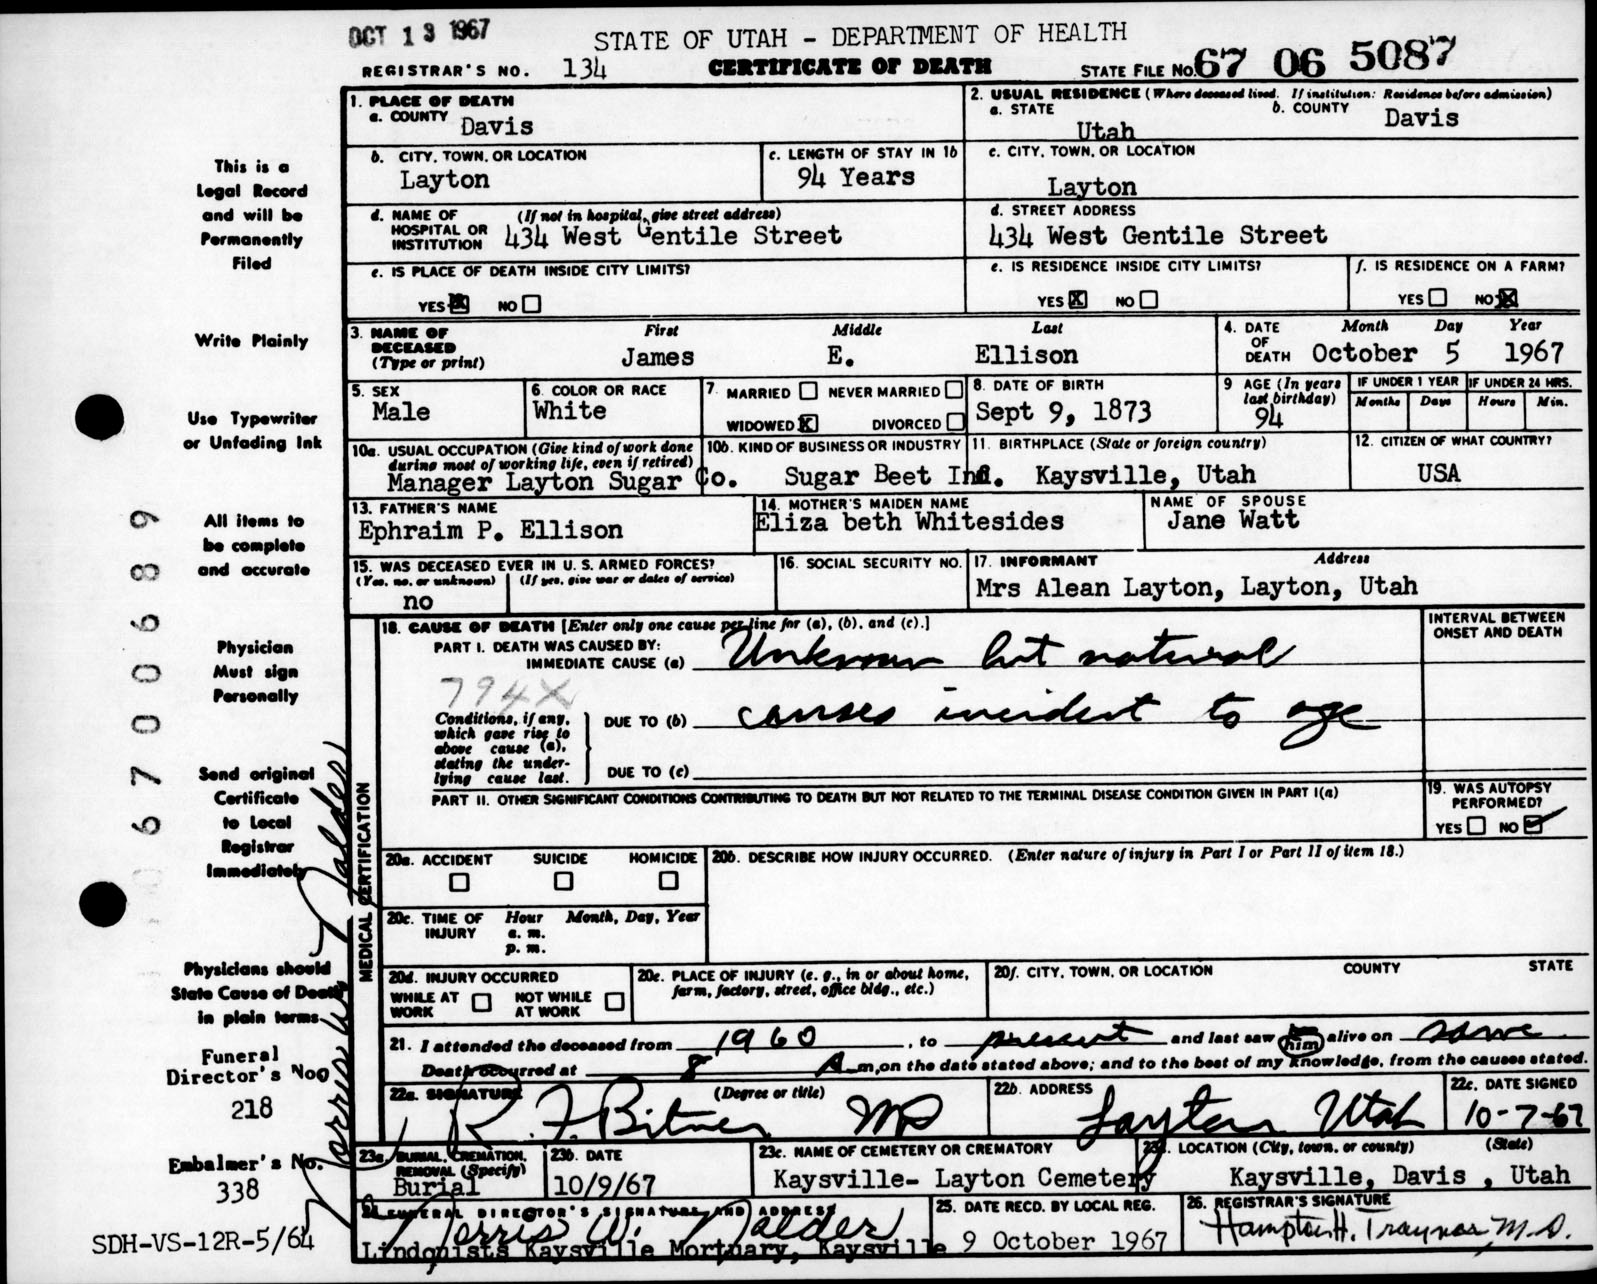 OCT 13 1967
STATE OF UTAH - DEPARTMENT OF HEALTH
REGISTRAR'S NO. 134 CERTIFICATE OF DEATH STATE FILE NO. 67 06 5087
1. PLACE OF DEATH
a. COUNTY Davis
2. USUAL RESIDENCE (Where deceased lived. If institution: Residence before admission)
a. STATE Utah b. COUNTY Davis
b. CITY, TOWN, OR LOCATION Layton
c. LENGTH OF STAY IN 1b 94 Years
c. CITY, TOWN, OR LOCATION
Layton
d. NAME OF HOSPITAL OR INSTITUTION (If not in hospital, give street address)
434 West Gentile Street
d. STREET ADDRESS
434 West Gentile Street
e. IS PLACE OF DEATH INSIDE CITY LIMITS?
YES X NO
e. IS RESIDENCE INSIDE CITY LIMITS?
YES X NO
f. IS RESIDENCE ON A FARM?
YES NO X
3. NAME OF DECEASED (Type or print)
First Middle Last
James E. Ellison
4. DATE OF DEATH
Month Day Year
October 5 1967
5. SEX
Male
6. COLOR OR RACE
White
7. MARRIED NEVER MARRIED
WIDOWED X DIVORCED
8. DATE OF BIRTH
Sept 9, 1873
9 AGE (In years last birthday)
94
IF UNDER 1 YEAR
Months Days
IF UNDER 24 HRS.
Hours Min.
10a. USUAL OCCUPATION (Give kind of work done
during most of working life, even if retired)
Manager Layton Sugar Co.
10b. KIND OF BUSINESS OR INDUSTRY
Sugar Beet Ind.
11. BIRTHPLACE (State or foreign country)
Kaysville, Utah
12. CITIZEN OF WHAT COUNTRY?
USA
13. FATHER'S NAME
Ephraim P. Ellison
14. MOTHER'S MAIDEN NAME
Eliza beth Whitesides
NAME OF SPOUSE
Jane Watt
15. WAS DECEASED EVER IN U. S. ARMED FORCES?
(Yes, no, or unknown) (If yes, give war or dates of service)
no
16. SOCIAL SECURITY NO.
17. INFORMANT Address
Mrs Alean Layton, Layton, Utah
MEDICAL CERTIFICATION
18. CAUSE OF DEATH [Enter only one cause per line for (a), (b), and (c).]
INTERVAL BETWEEN
ONSET AND DEATH
PART I. DEATH WAS CAUSED BY:
IMMEDIATE CAUSE (a) Unknown but natural
794X
Conditions, if any,
which gave rise to
above cause (a),
stating the under-
lying cause last.
DUE TO (b) causes incident to age
DUE TO (c)
PART II. OTHER SIGNIFICANT CONDITIONS CONTRIBUTING TO DEATH BUT NOT RELATED TO THE TERMINAL DISEASE CONDITION GIVEN IN PART I(a)
19. WAS AUTOPSY
PERFORMED?
YES NO
20a. ACCIDENT SUICIDE HOMICIDE
20b. DESCRIBE HOW INJURY OCCURRED. (Enter nature of injury in Part I or Part II of item 18.)
20c. TIME OF INJURY Hour Month, Day, Year
a. m.
p. m.
20d. INJURY OCCURRED
WHILE AT WORK NOT WHILE AT WORK
20e. PLACE OF INJURY (e. g., in or about home,
farm, factory, street, office bldg., etc.)
20f. CITY, TOWN, OR LOCATION COUNTY STATE
21. I attended the deceased from 1960, to present and last saw him alive on same
Death occurred at 8 A m, on the date stated above; and to the best of my knowledge, from the causes stated.
22a. SIGNATURE (Degree or title)
R. F. Bitner MD
22b. ADDRESS
Layton Utah
22c. DATE SIGNED
10-7-67
23a. BURIAL, CREMATION,
REMOVAL (Specify)
Burial
23b. DATE
10/9/67
23c. NAME OF CEMETERY OR CREMATORY
Kaysville- Layton Cemetery
23d. LOCATION (City, town, or county) (State)
Kaysville, Davis , Utah
24. FUNERAL DIRECTOR'S SIGNATURE AND ADDRESS
Norris W. Nalder
Lindquists Kaysville Mortuary, Kaysville
25. DATE RECD. BY LOCAL REG.
9 October 1967
26. REGISTRAR'S SIGNATURE
Hampton H. Traynor, M.D.
This is a
Legal Record
and will be
Permanently
Filed
Write Plainly
Use Typewriter
or Unfading Ink
All items to
be complete
and accurate
Physician
Must sign
Personally
Send original
Certificate
to Local
Registrar
Immediately
Physicians should
State Cause of Death
in plain terms
Funeral
Director's No.
218
Embalmer's No.
338
SDH-VS-12R-5/64
6700689
Norris W. Nalder